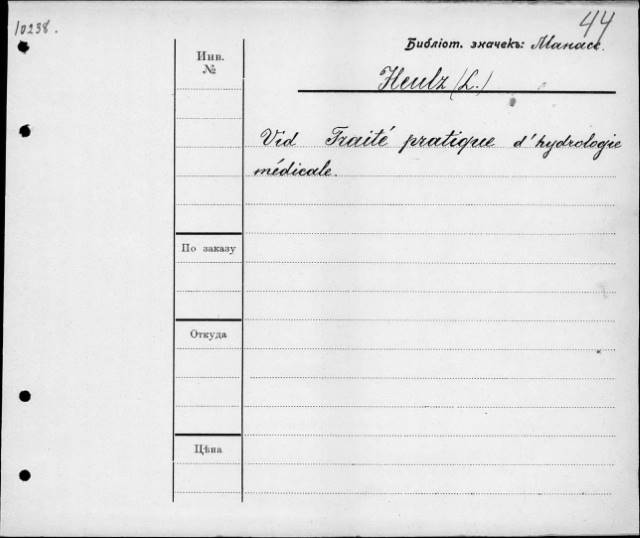 10238.
44
Библіот. значекъ: Манасс.
Heulz (L.)
Инв.
№
Vid Traité pratique d'hydrologie
médicale.
По заказу
Откуда
Цѣна